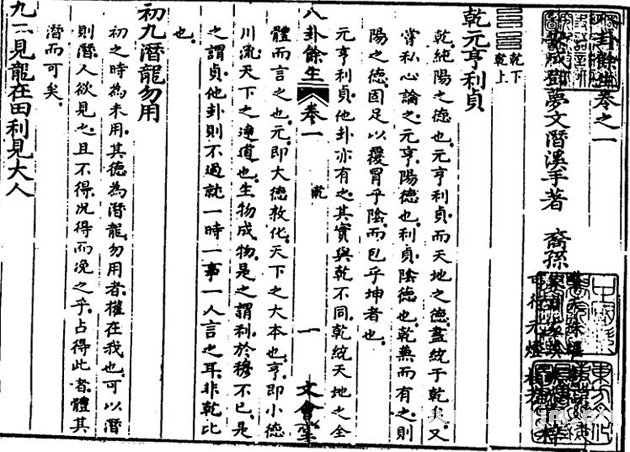 八卦餘生卷之一
成鄧夢文潛溪手著 裔孫
乾下
乾上
乾元亨利貞
乾純陽之德也元亨利貞而天地之德盡統于乾矣又
嘗私心論之元亨陽德也利貞陰德也乾兼而有之則
陽之德固足以覆冒乎陰而包乎坤者也
元亨利貞他卦亦有之其實與乾不同乾統天地之全
八卦餘生 卷一 乾 一 文會堂
體而言之也元即大德敦化天下之大本也亨即小德
川流天下之達道也生物成物是之謂利於穆不已是
之謂貞他卦則不過就一時一事一人言之耳非乾比
也
初九潛龍勿用
初之時為未用其德為潛龍勿用者權在我也可以潛
則潛人欲見之且不得況得而凂之乎占得此者體其
潛而可矣
九二見龍在田利見大人